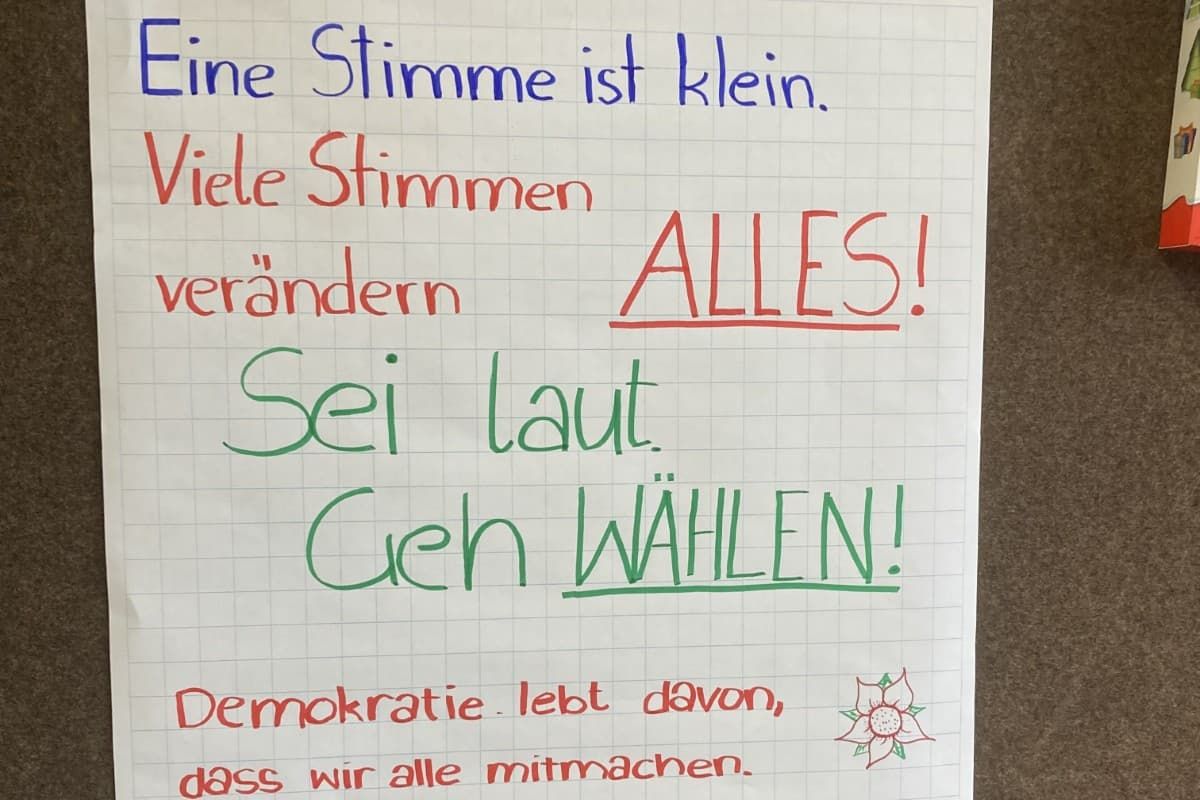 Eine Stimme ist klein.
Viele Stimmen
verändern ALLES!
Sei laut.
Geh WÄHLEN!
Demokratie lebt davon,
dass wir alle mitmachen.